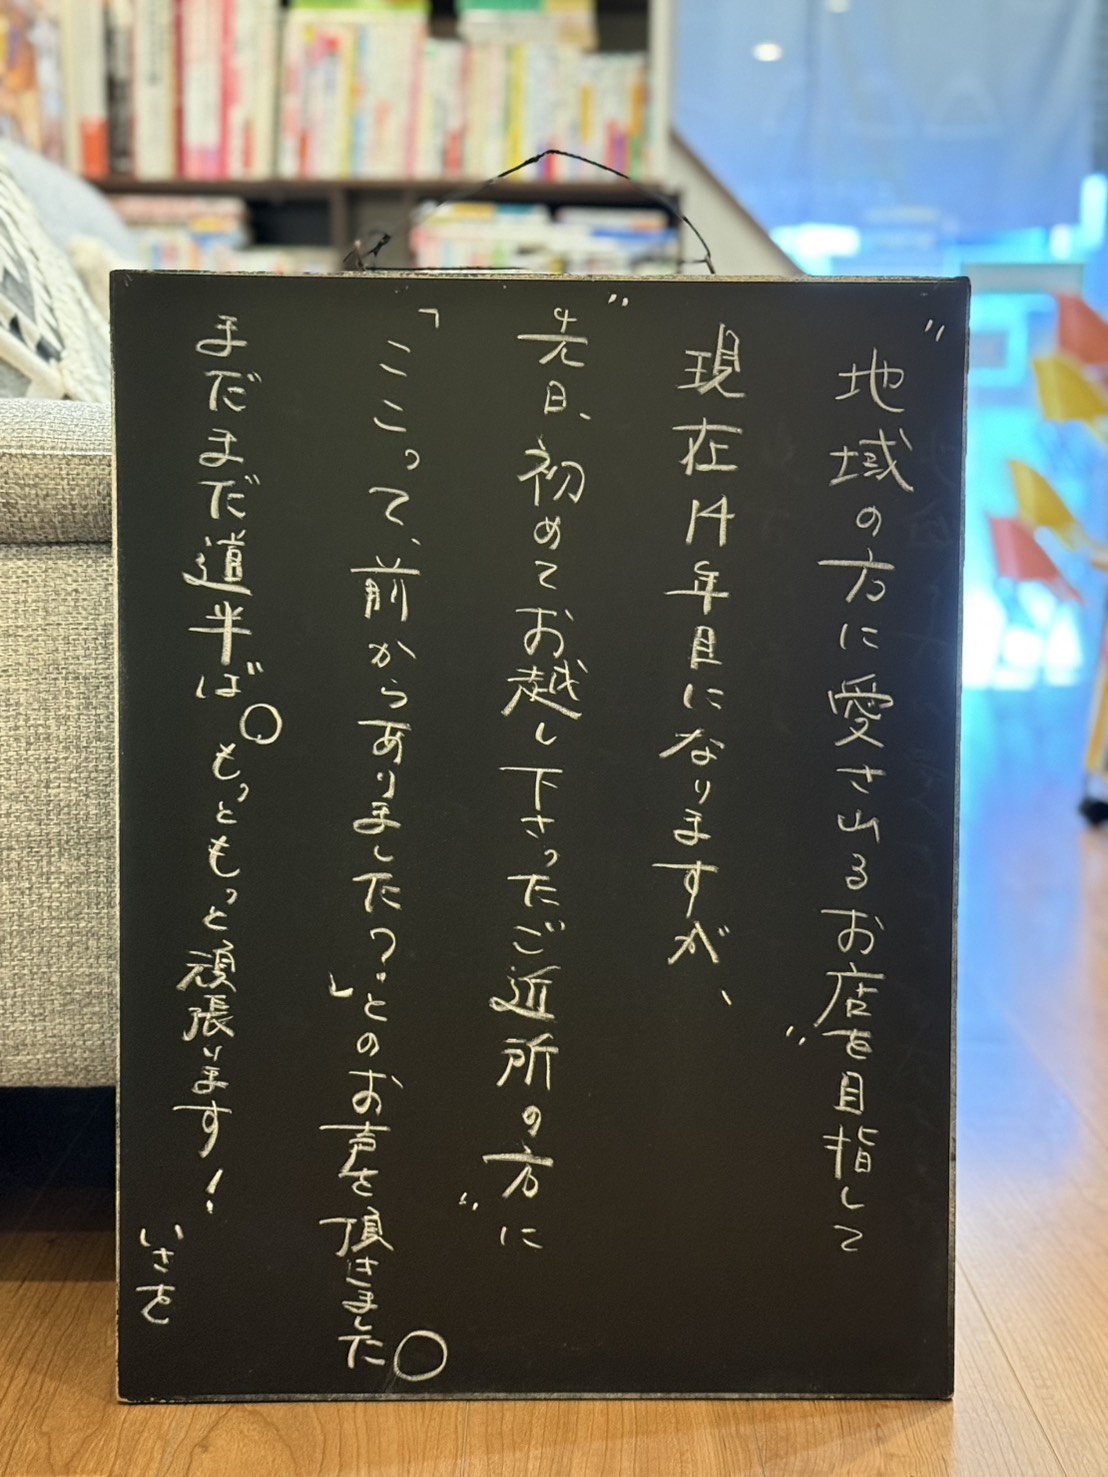 "地域の方に愛されるお店"を目指して
現在14年目になりますが、
"先日、初めてお越し下さったご近所の方"に
「ここって、前からありました?」とのお声を頂きました。
まだまだ道半ば。もっともっと頑張ります!
いさを